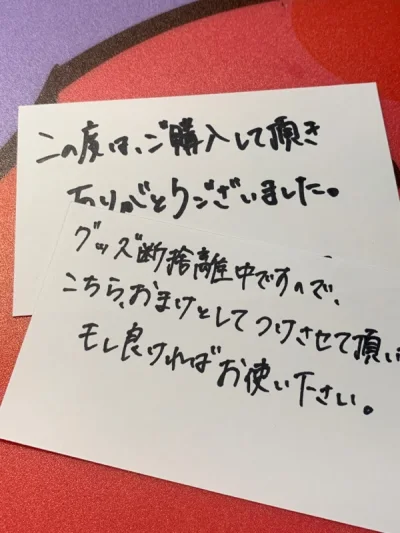 この度は、ご購入して頂き
ありがとうございました。
グッズ断捨離中ですので、
こちら、おまけとしてつけさせて頂い
モし良ければお使い下さい。